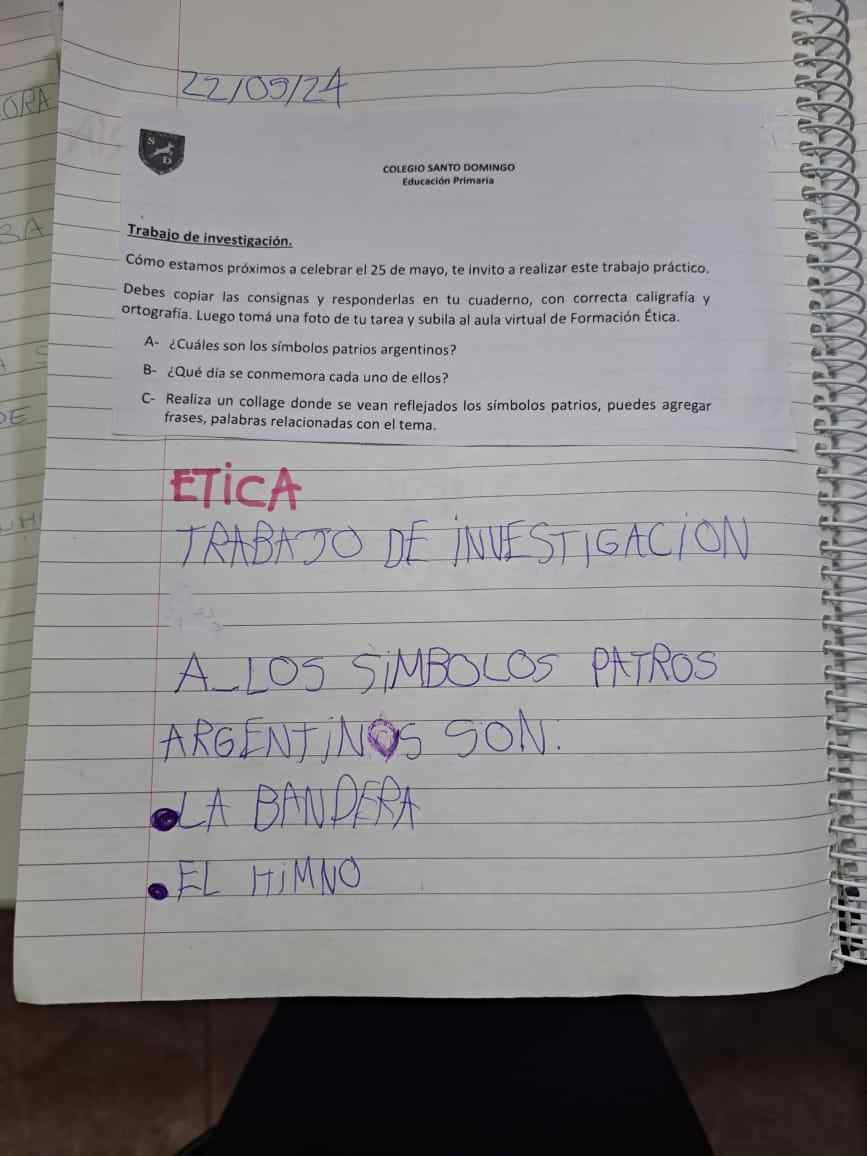 22/05/24
S
D
COLEGIO SANTO DOMINGO
Educación Primaria
Trabajo de investigación.
Cómo estamos próximos a celebrar el 25 de mayo, te invito a realizar este trabajo práctico.
Debes copiar las consignas y responderlas en tu cuaderno, con correcta caligrafía y
ortografía. Luego tomá una foto de tu tarea y subila al aula virtual de Formación Ética.
A- ¿Cuáles son los símbolos patrios argentinos?
B- ¿Qué día se conmemora cada uno de ellos?
C- Realiza un collage donde se vean reflejados los símbolos patrios, puedes agregar
frases, palabras relacionadas con el tema.
ETiCA
TRABAJO DE iNVESTIGACiON
A_LOS SiMBOLOS PATROS
ARGENTiNOS SON:
•LA BANDERA
•EL HiMNO